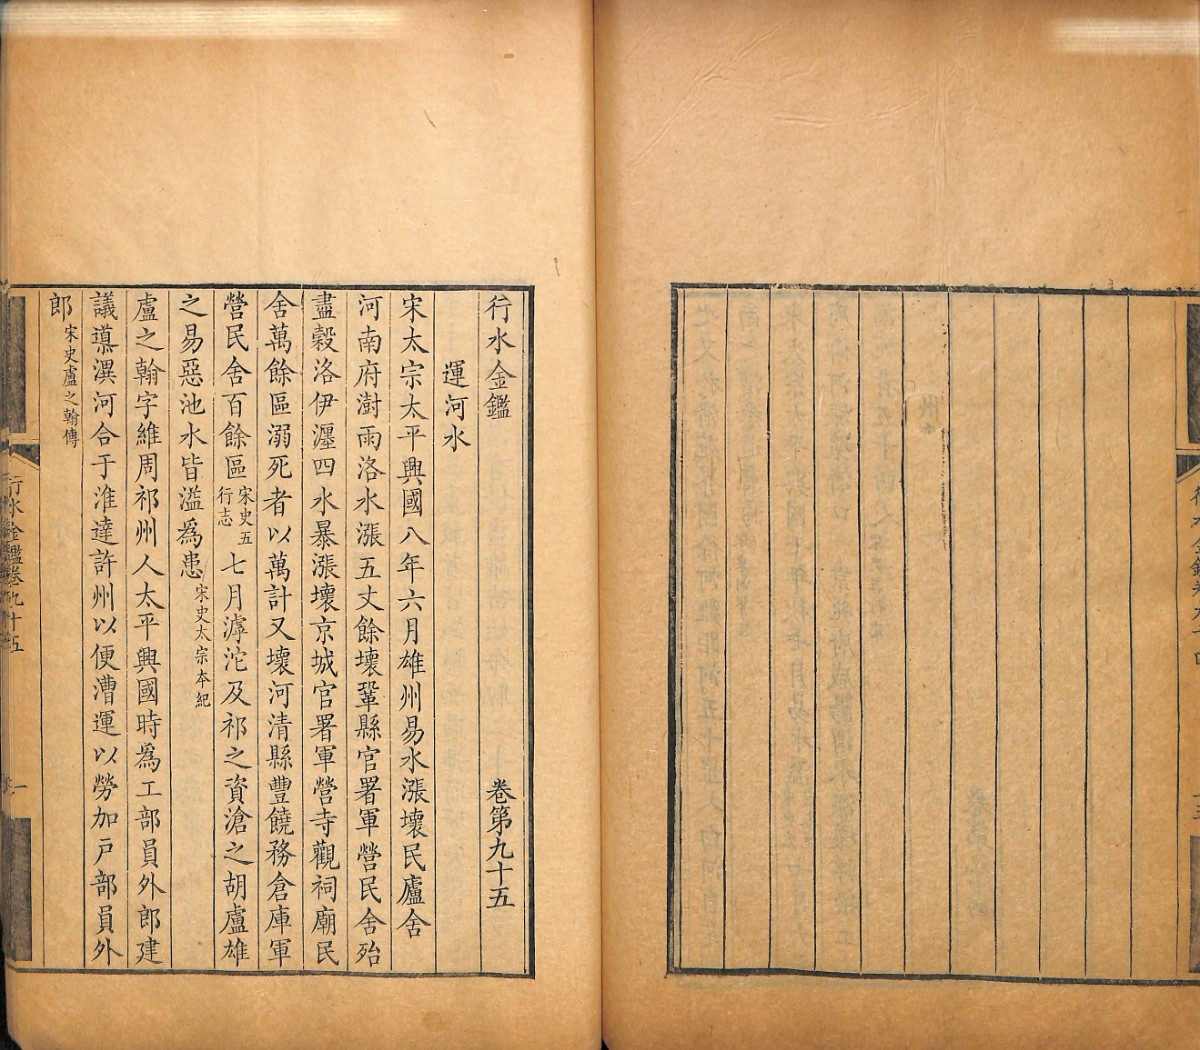 行水金鑑 卷第九十五
運河水
宋太宗太平興國八年六月雄州易水漲壞民廬舍
河南府澍雨洛水漲五丈餘壞鞏縣官署軍營民舍殆
盡穀洛伊瀍四水暴漲壞京城官署軍營寺觀祠廟民
舍萬餘區溺死者以萬計又壞河清縣豐饒務倉庫軍
營民舍百餘區宋史五行志七月滹沱及祁之資滄之胡盧雄
之易惡池水皆溢為患宋史太宗本紀
盧之翰字維周祁州人太平興國時為工部員外郎建
議導潩河合于淮達許州以便漕運以勞加戶部員外
郎宋史盧之翰傳
行水金鑑卷九十五 一